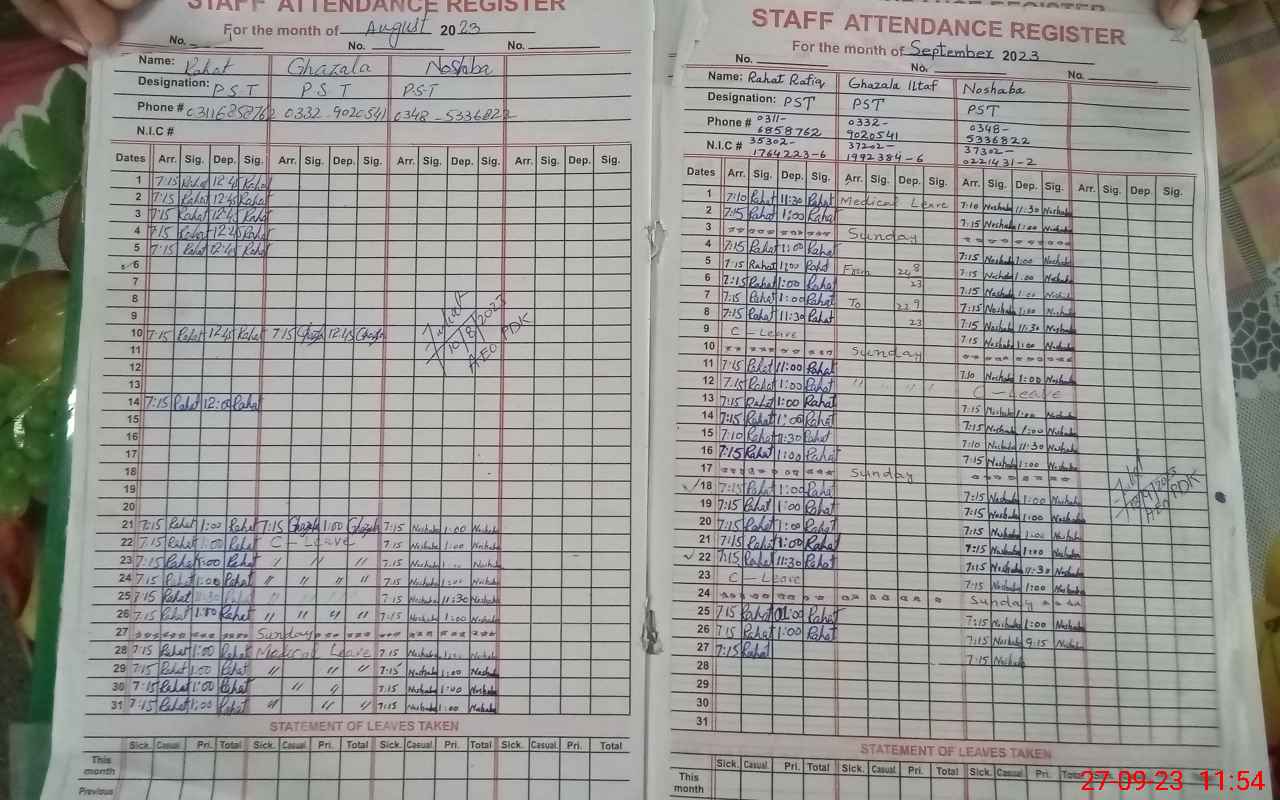 STAFF ATTENDANCE REGISTER
For the month of August 2023
No. No. No.
Name: Rahat Ghazala Noshaba
Designation: P S T P S T P S T
Phone # 03116858762 0332-9020541 0348-5336822
N.I.C #
Dates Arr. Sig. Dep. Sig. Arr. Sig. Dep. Sig. Arr. Sig. Dep. Sig. Arr. Sig. Dep. Sig.
1 7:15 Rahat 12:45 Rahat
2 7:15 Rahat 12:45 Rahat
3 7:15 Rahat 12:45 Rahat
4 7:15 Rahat 12:45 Rahat
5 7:15 Rahat 12:45 Rahat
6
7
8
9
10 7:15 Rahat 12:45 Rahat 7:15 Ghazala 12:45 Ghazala
10/8/2023
AEO PDK
11
12
13
14 7:15 Rahat 12:00 Rahat
15
16
17
18
19
20
21 7:15 Rahat 1:00 Rahat 7:15 Ghazala 1:00 Ghazala 7:15 Noshaba 1:00 Noshaba
22 7:15 Rahat 1:00 Rahat C - Leave 7:15 Noshaba 1:00 Noshaba
23 7:15 Rahat 1:00 Rahat " " " 7:15 Noshaba 1:00 Noshaba
24 7:15 Rahat 1:00 Rahat " " " " 7:15 Noshaba 1:00 Noshaba
25 7:15 Rahat 11:30 Rahat " " 7:15 Noshaba 11:30 Noshaba
26 7:15 Rahat 1:00 Rahat " " " " 7:15 Noshaba 1:00 Noshaba
27 Sunday
28 7:15 Rahat 1:00 Rahat Medical Leave 7:15 Noshaba 1:00 Noshaba
29 7:15 Rahat 1:00 Rahat " " " 7:15 Noshaba 1:00 Noshaba
30 7:15 Rahat 1:00 Rahat " " 7:15 Noshaba 1:00 Noshaba
31 7:15 Rahat 1:00 Rahat " " " 7:15 Noshaba 1:00 Noshaba
STATEMENT OF LEAVES TAKEN
Sick. Casual. Pri. Total Sick. Casual. Pri. Total Sick. Casual. Pri. Total Sick. Casual. Pri. Total
This month
Previous
STAFF ATTENDANCE REGISTER
For the month of September 2023
No. No. No.
Name: Rahat Rafiq Ghazala Iltaf Noshaba
Designation: PST PST PST
Phone # 0311-6858762 0332-9020541 0348-5336822
N.I.C # 35302-1764223-6 37202-1992384-6 37302-0221431-2
Dates Arr. Sig. Dep. Sig. Arr. Sig. Dep. Sig. Arr. Sig. Dep. Sig. Arr. Sig. Dep. Sig.
1 7:10 Rahat 11:30 Rahat Medical Leave 7:10 Noshaba 11:30 Noshaba
2 7:15 Rahat 1:00 Rahat 7:15 Noshaba 1:00 Noshaba
3 Sunday
4 7:15 Rahat 1:00 Rahat 7:15 Noshaba 1:00 Noshaba
5 7:15 Rahat 1:00 Rahat From 7:15 Noshaba 1:00 Noshaba
6 7:15 Rahat 1:00 Rahat 23 7:15 Noshaba 1:00 Noshaba
7 7:15 Rahat 1:00 Rahat To 7:15 Noshaba 1:00 Noshaba
8 7:15 Rahat 11:30 Rahat 23 7:15 Noshaba 11:30 Noshaba
9 C - Leave 7:15 Noshaba 1:00 Noshaba
10 Sunday
11 7:15 Rahat 11:00 Rahat 7:10 Noshaba 1:00 Noshaba
12 7:15 Rahat 1:00 Rahat " " " " C - Leave
13 7:15 Rahat 1:00 Rahat 7:15 Noshaba 1:00 Noshaba
14 7:15 Rahat 1:00 Rahat 7:15 Noshaba 1:00 Noshaba
15 7:10 Rahat 11:30 Rahat 7:10 Noshaba 11:30 Noshaba
16 7:15 Rahat 1:00 Rahat 7:15 Noshaba 1:00 Noshaba
17 Sunday
AEO PDK
18 7:15 Rahat 1:00 Rahat 7:15 Noshaba 1:00 Noshaba
19 7:15 Rahat 1:00 Rahat 7:15 Noshaba 1:00 Noshaba
20 7:15 Rahat 1:00 Rahat 7:15 Noshaba 1:00 Noshaba
21 7:15 Rahat 1:00 Rahat 7:15 Noshaba 1:00 Noshaba
22 7:15 Rahat 11:30 Rahat 7:15 Noshaba 11:30 Noshaba
23 C - Leave 7:15 Noshaba 1:00 Noshaba
24 Sunday
25 7:15 Rahat 01:00 Rahat 7:15 Noshaba 1:00 Noshaba
26 7:15 Rahat 1:00 Rahat 7:15 Noshaba 9:15 Noshaba
27 7:15 Rahat 7:15 Noshaba
28
29
30
31
STATEMENT OF LEAVES TAKEN
Sick. Casual. Pri. Total Sick. Casual. Pri. Total Sick. Casual. Pri. Total Sick. Casual. Pri. Total
This month
27-09-23 11:54